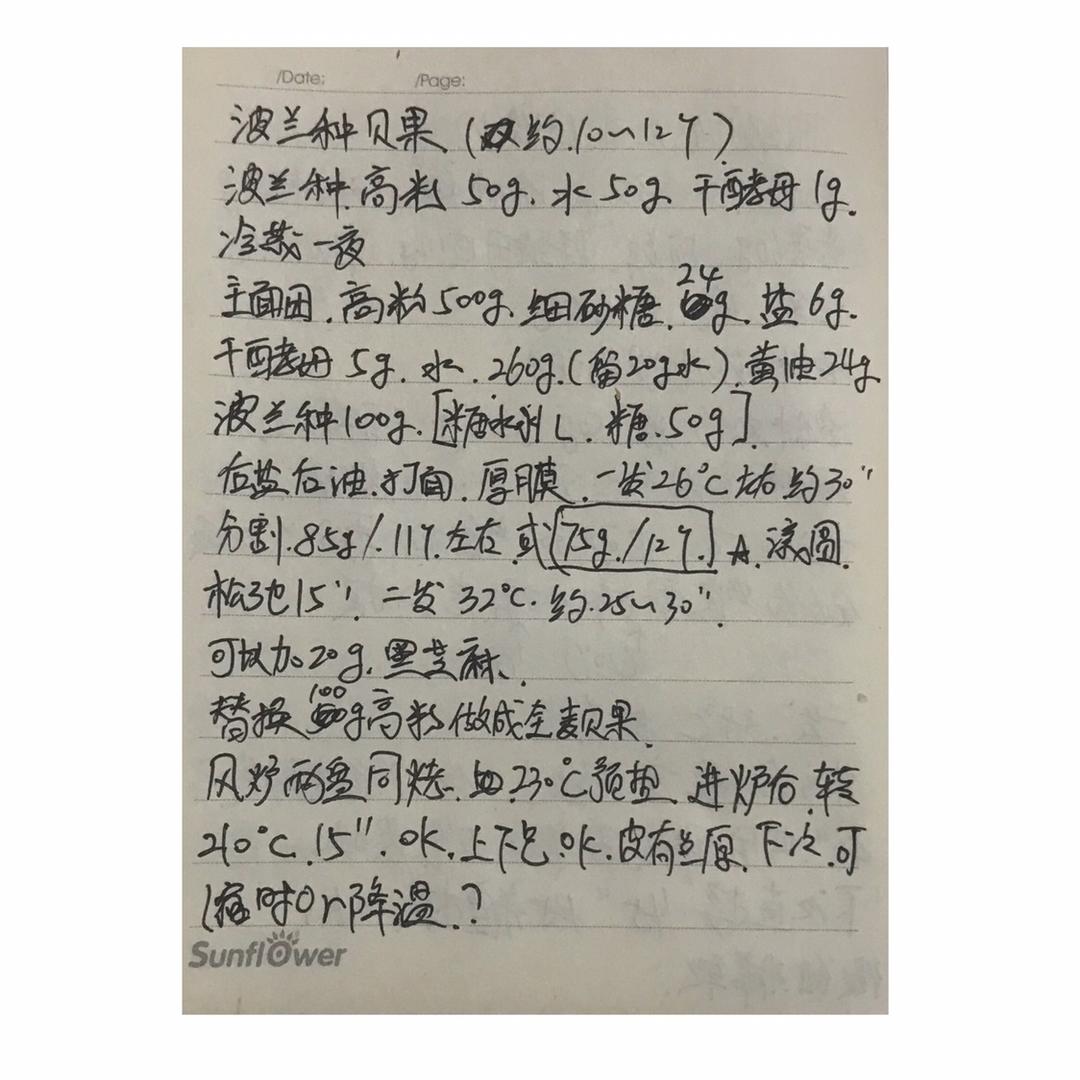 /Date: /Page:
波兰种贝果 (约.10~12个)
波兰种.高粉 50g. 水 50g 干酵母 1g.
冷藏一夜
主面团. 高粉 500g. 细砂糖. 24g. 盐 6g.
干酵母 5g. 水. 260g. (留20g水). 黄油 24g
波兰种 100g. [糖水 1L. 糖. 50g].
后盐后油. 打面. 厚膜. 一发 26°C 左右 约 30''
分割. 85g/. 11个. 左右 或 (75g./12个.) ☆. 滚圆.
松弛 15''. 二发 32°C. 约. 25~30''.
可以加 20g. 黑芝麻.
替换 100g 高粉 做成全麦贝果.
风炉两盘同烤. 230°C 预热. 进炉后. 转
210°C. 15''. OK. 上下色. ok. 皮有些厚. 下次. 可
缩时 or 降温. ?
Sunflower